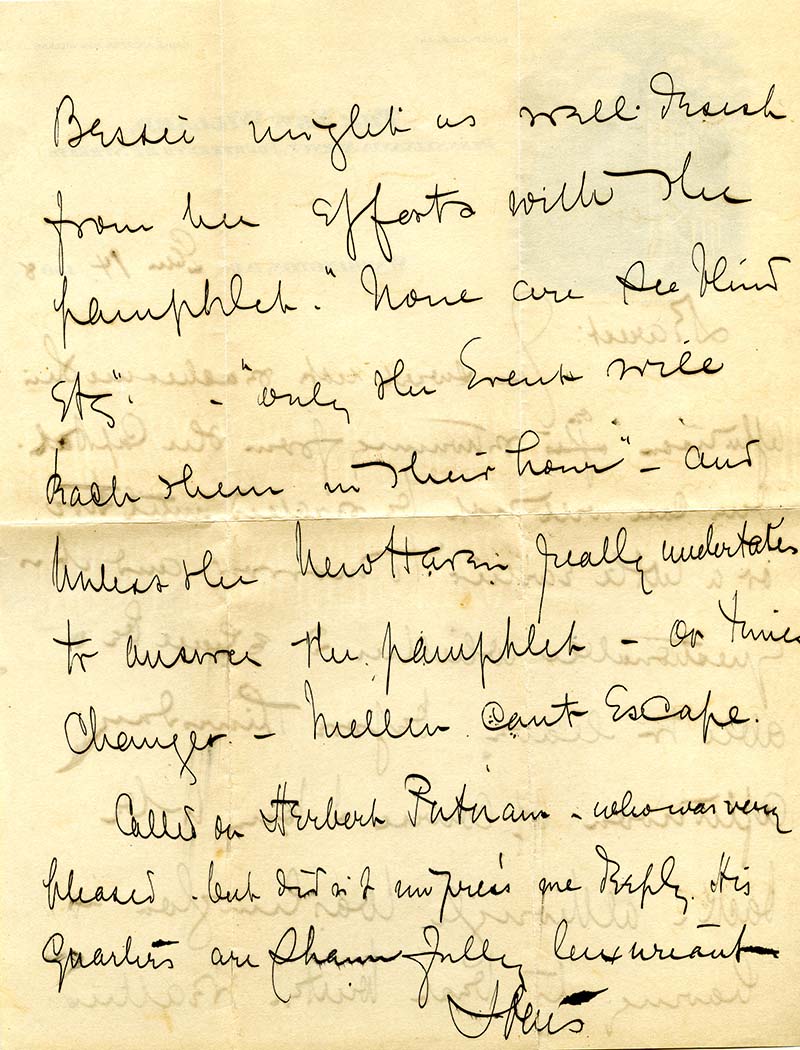 Bessie might as well desist
from her efforts with the
pamphlet. "None are so blind
etc". - "only the Event will
teach them in their hour" - and
Unless the New Haven really undertakes
to answer the pamphlet - or times
changes. - Mellen cant Escape.
Called on Herbert Putnam - who was very
pleased - but didn't impress me deeply. His
Quarters are shamefully luxuriant